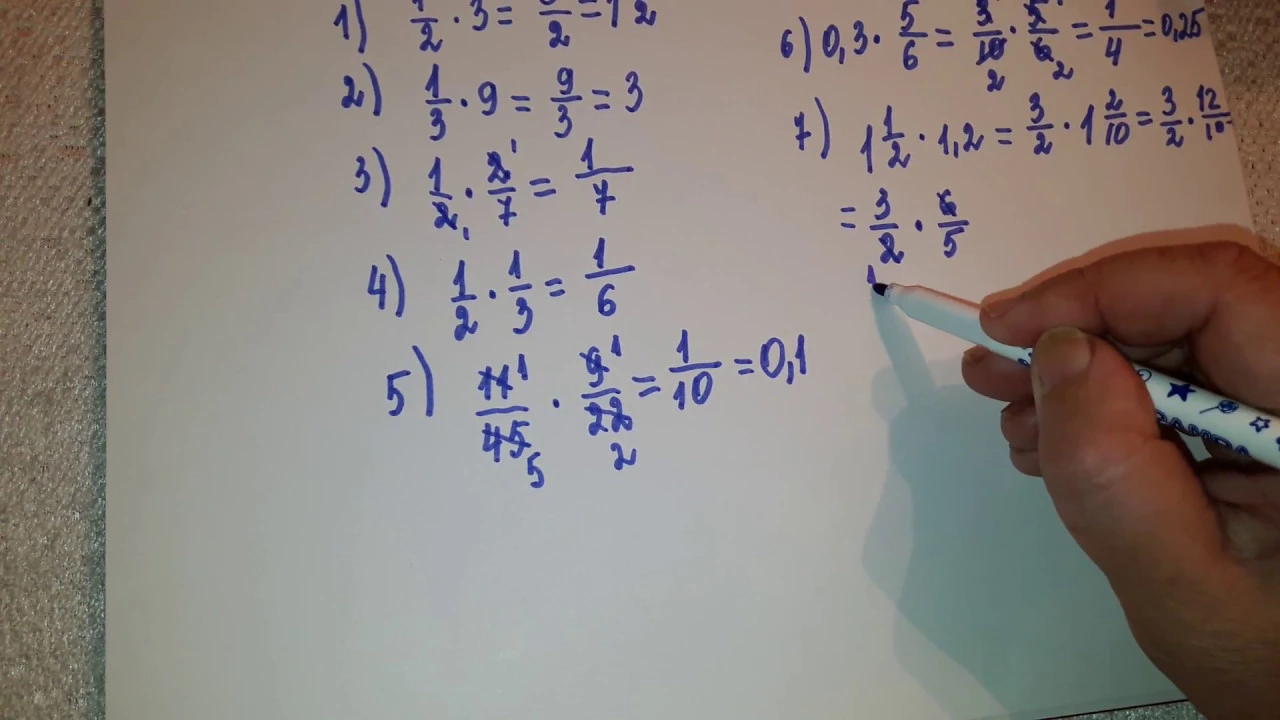 1) 1/2 · 3 = 3/2 = 1 1/2
2) 1/3 · 9 = 9/3 = 3
3) 1/2 1 · 2 1/7 = 1/7
4) 1/2 · 1/3 = 1/6
5) 11 1/45 5 · 9 1/22 2 = 1/10 = 0,1
6) 0,3 · 5/6 = 3/10 2 · 5 1/6 2 = 1/4 = 0,25
7) 1 1/2 · 1,2 = 3/2 · 1 2/10 = 3/2 · 12/10
= 3/2 1 · 6/5